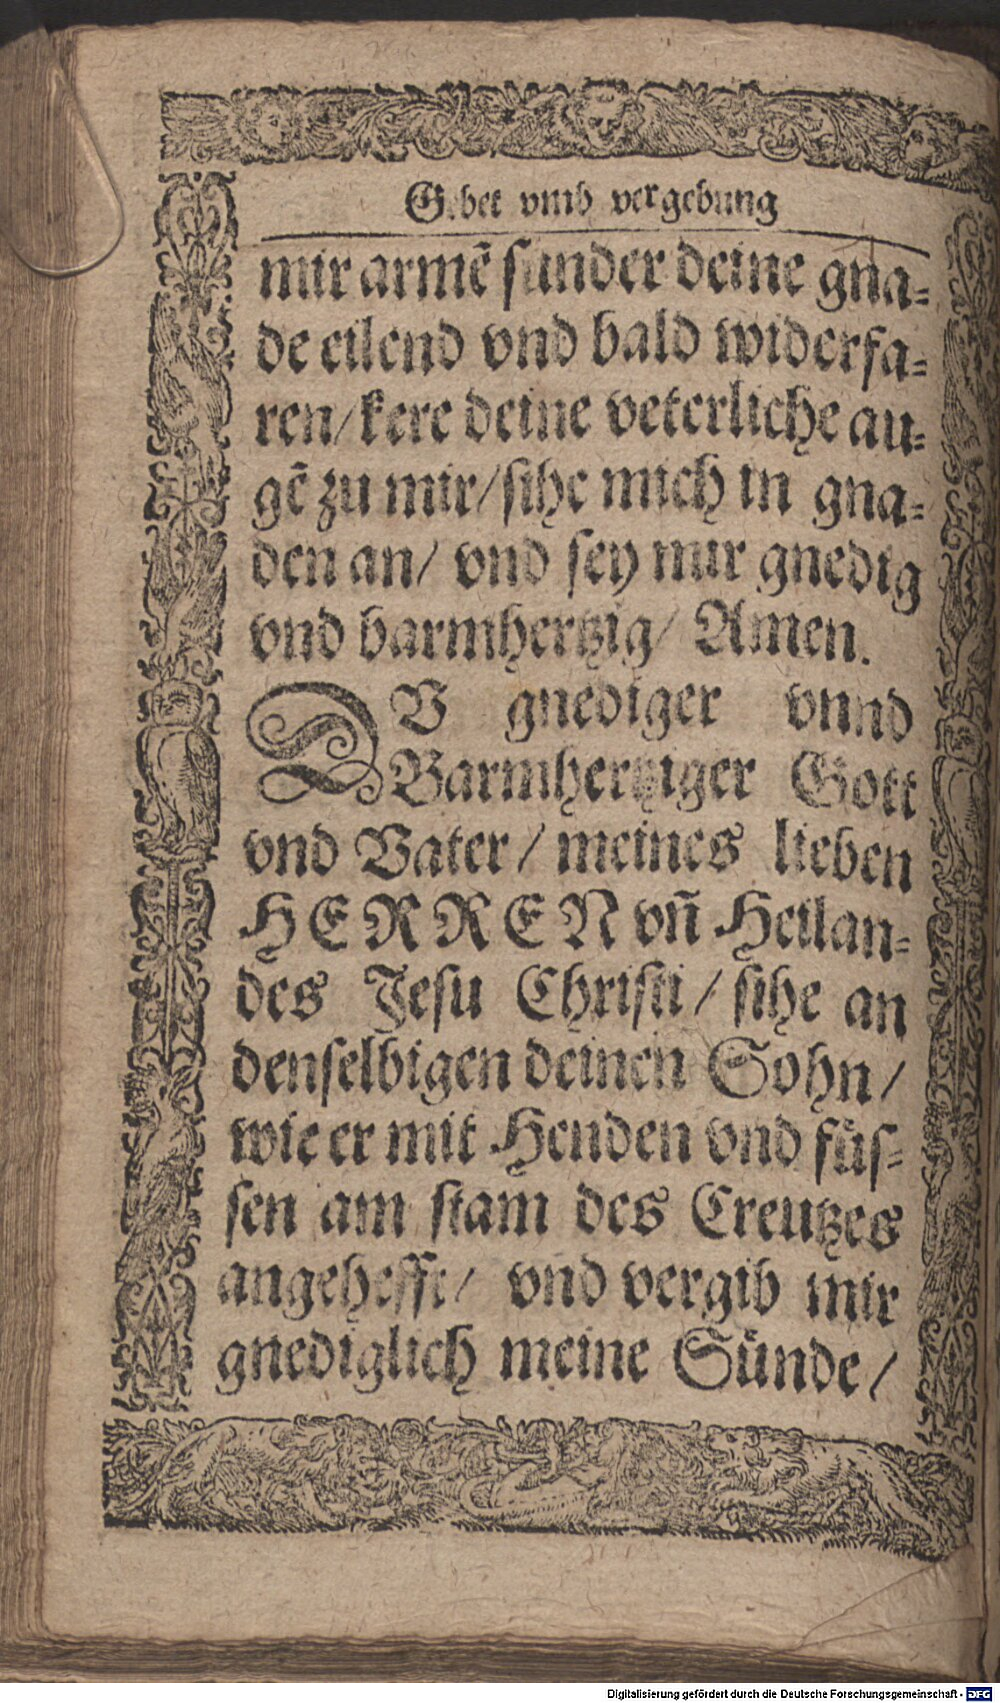 Gebet vmb vergebung
mir armẽ sunder deine gna⸗
de eilend vnd bald widerfa⸗
ren/kere deine veterliche au⸗
gẽ zu mir/sihe mich in gna⸗
den an/ vnd sey mir gnedig
vnd barmhertzig/ Amen.
DV gnediger vnnd
Barmhertziger Gott
vnd Vater/ meines lieben
HERREN vñ Heilan⸗
des Jesu Christi/ sihe an
denselbigen deinen Sohn/
wie er mit Henden vnd füs⸗
sen am stam des Creutzes
angehefft/ vnd vergib mir
gnediglich meine Sünde/
Digitalisierung gefördert durch die Deutsche Forschungsgemeinschaft - DFG